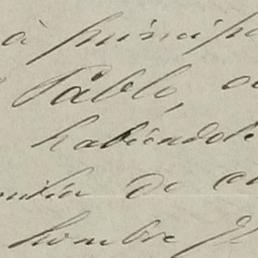 à princip
Pablo, o
habiendole
de
hombre